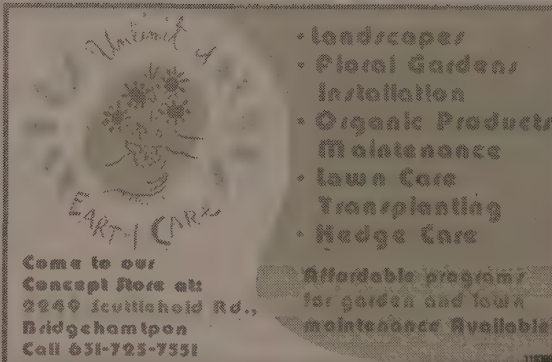 Unlimited
EARTH CARE
• Landscapes
• Floral Gardens
Installation
• Organic Products
Maintenance
• Lawn Care
Transplanting
• Hedge Care
Come to our
Concept Store at:
2249 Scuttlehold Rd.,
Bridgehamtpon
Call 631-725-7551
Affordable programs
for garden and lawn
maintenance Available